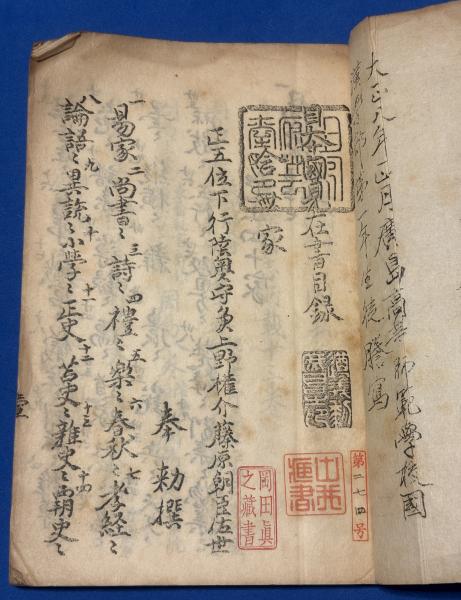 大正八年一月廣島高等師範學校國
年生徒謄寫
日本國見在書目録
家
正五位下行陸奥守兼上野權介藤原朝臣佐世
奉勅撰
一易家二尚書〻三詩〻四禮〻五樂〻六春秋〻七孝経〻
八論語〻九異説〻十小學〻十一正史〻十二古史〻十三雜史〻十四覇史〻
第二七四号
岡田眞
之藏書